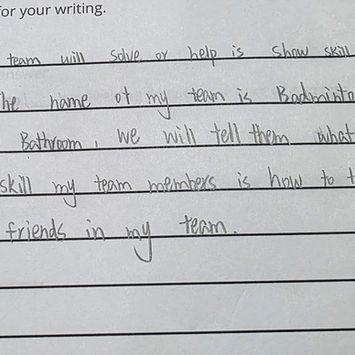 for your writing.
team will solve or help is show skill
he name of my team is Badminto
Bathroom, we will tell them what
skill my team members is how to t
friends in my team.